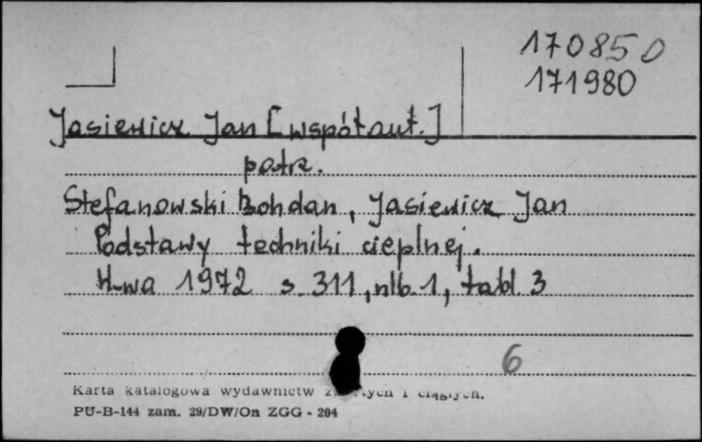 170850
171980
Jasiewicz Jan [współaut.]
patrz.
Stefanowski Bohdan, Jasiewicz Jan
Podstawy techniki cieplnej.
W-wa 1972 s. 311, nlb. 1, tabl. 3
6
Karta katalogowa wydawnictw zwartych i ciągłych.
PU-B-144 zam. 29/DW/On ZGG - 204